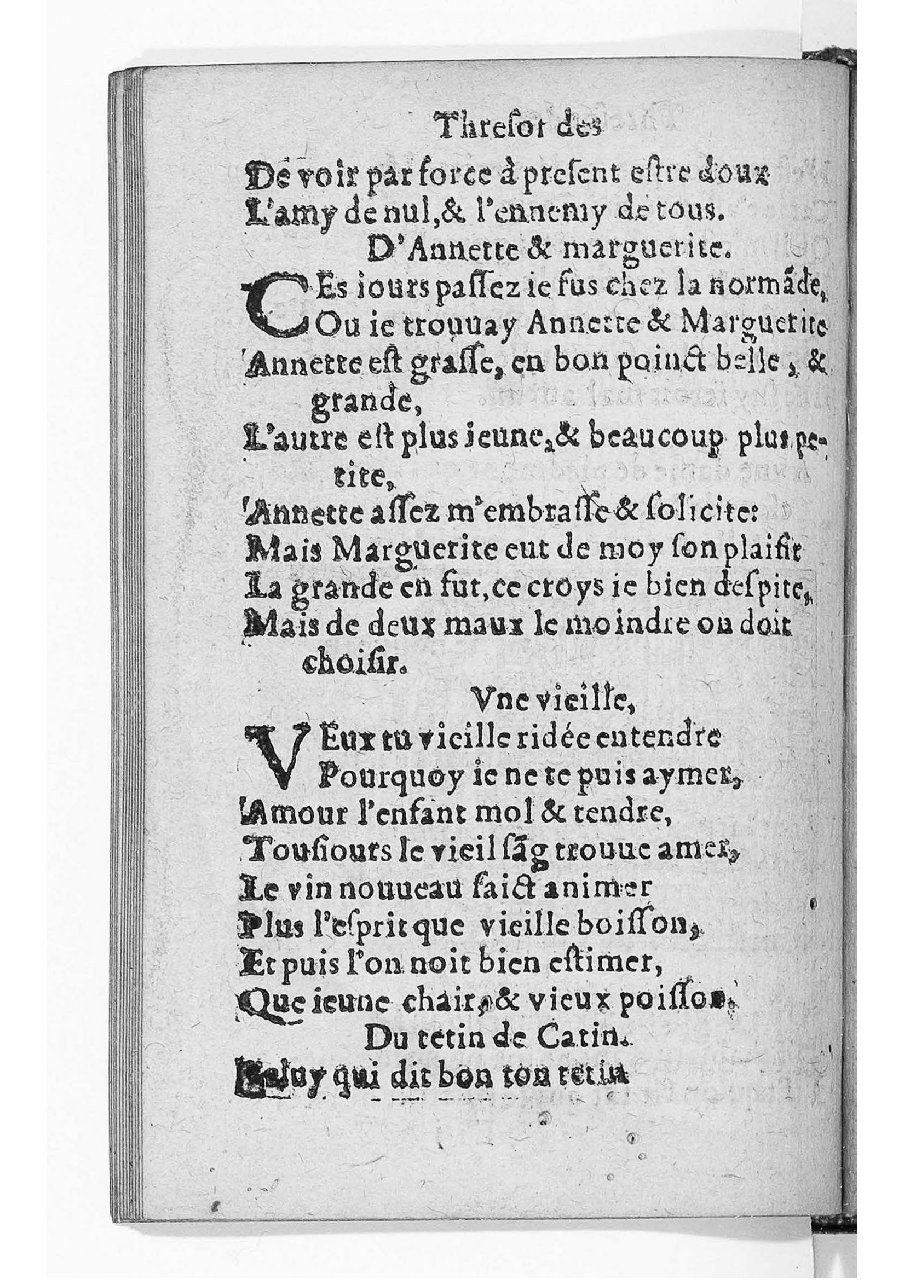 Threſor des
De voir par force à preſent eſtre doux
L'amy de nul,& l'ennemy de tous.
D'Annette & marguerite.
CEs iours paſſez ie fus chez la normãde,
Ou ie trouuay Annette & Marguerite
Annette eſt graſſe, en bon poinct belle, &
grande,
L'autre eſt plus ieune,& beaucoup plus pe-
tite,
Annette aſſez m'embraſſe & ſolicite:
Mais Marguerite eut de moy ſon plaiſir
La grande en fut,ce croys ie bien deſpite,
Mais de deux maux le moindre ou doit
choiſir.
Vne vieille,
VEux tu vieille ridée entendre
Pourquoy ie ne te puis aymer,
Amour l'enfant mol & tendre,
Touſiours le vieil ſãg trouue amer,
Le vin nouueau faict animer
Plus l'eſprit que vieille boiſſon,
Et puis l'on noit bien eſtimer,
Que ieune chair, & vieux poiſſon.
Du tetin de Catin.
Celuy qui dit bon ton tetin